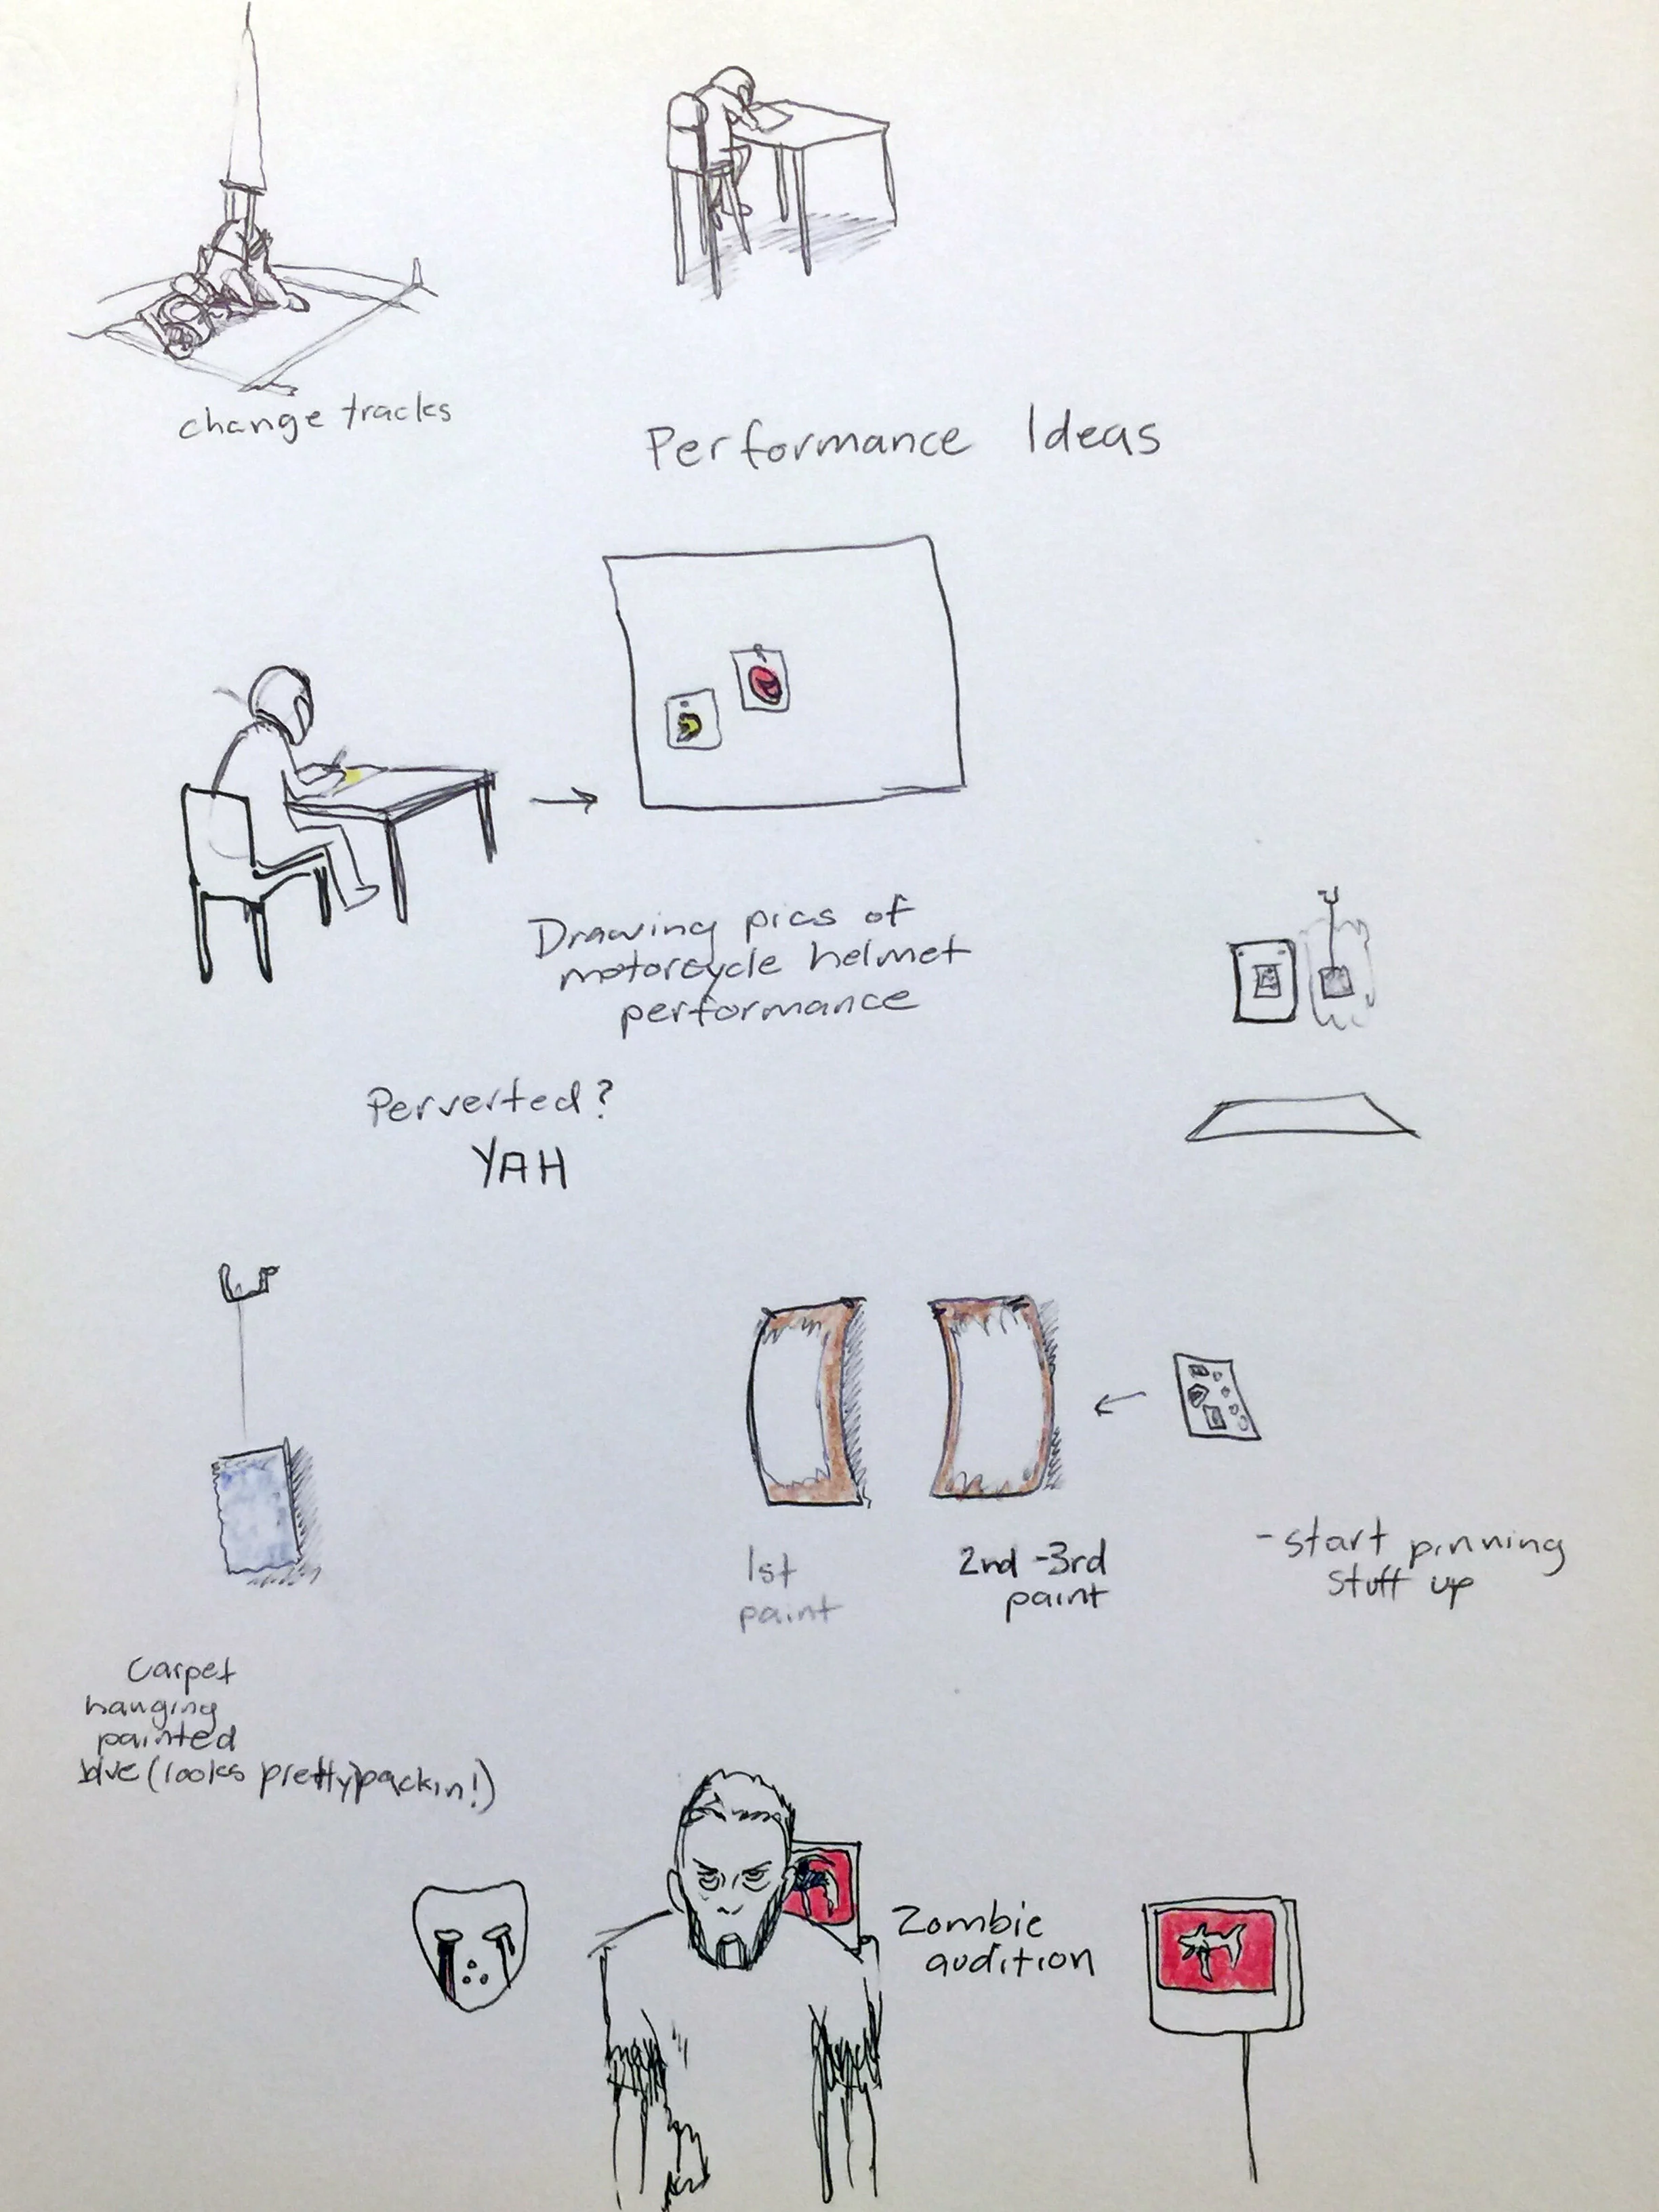 change tracks
Performance Ideas
Drawing pics of
motorcycle helmet
performance
Perverted?
YAH
1st
paint
2nd-3rd
paint
-start pinning
stuff up
Carpet
hanging
painted
blue (looks pretty packin!)
Zombie
audition